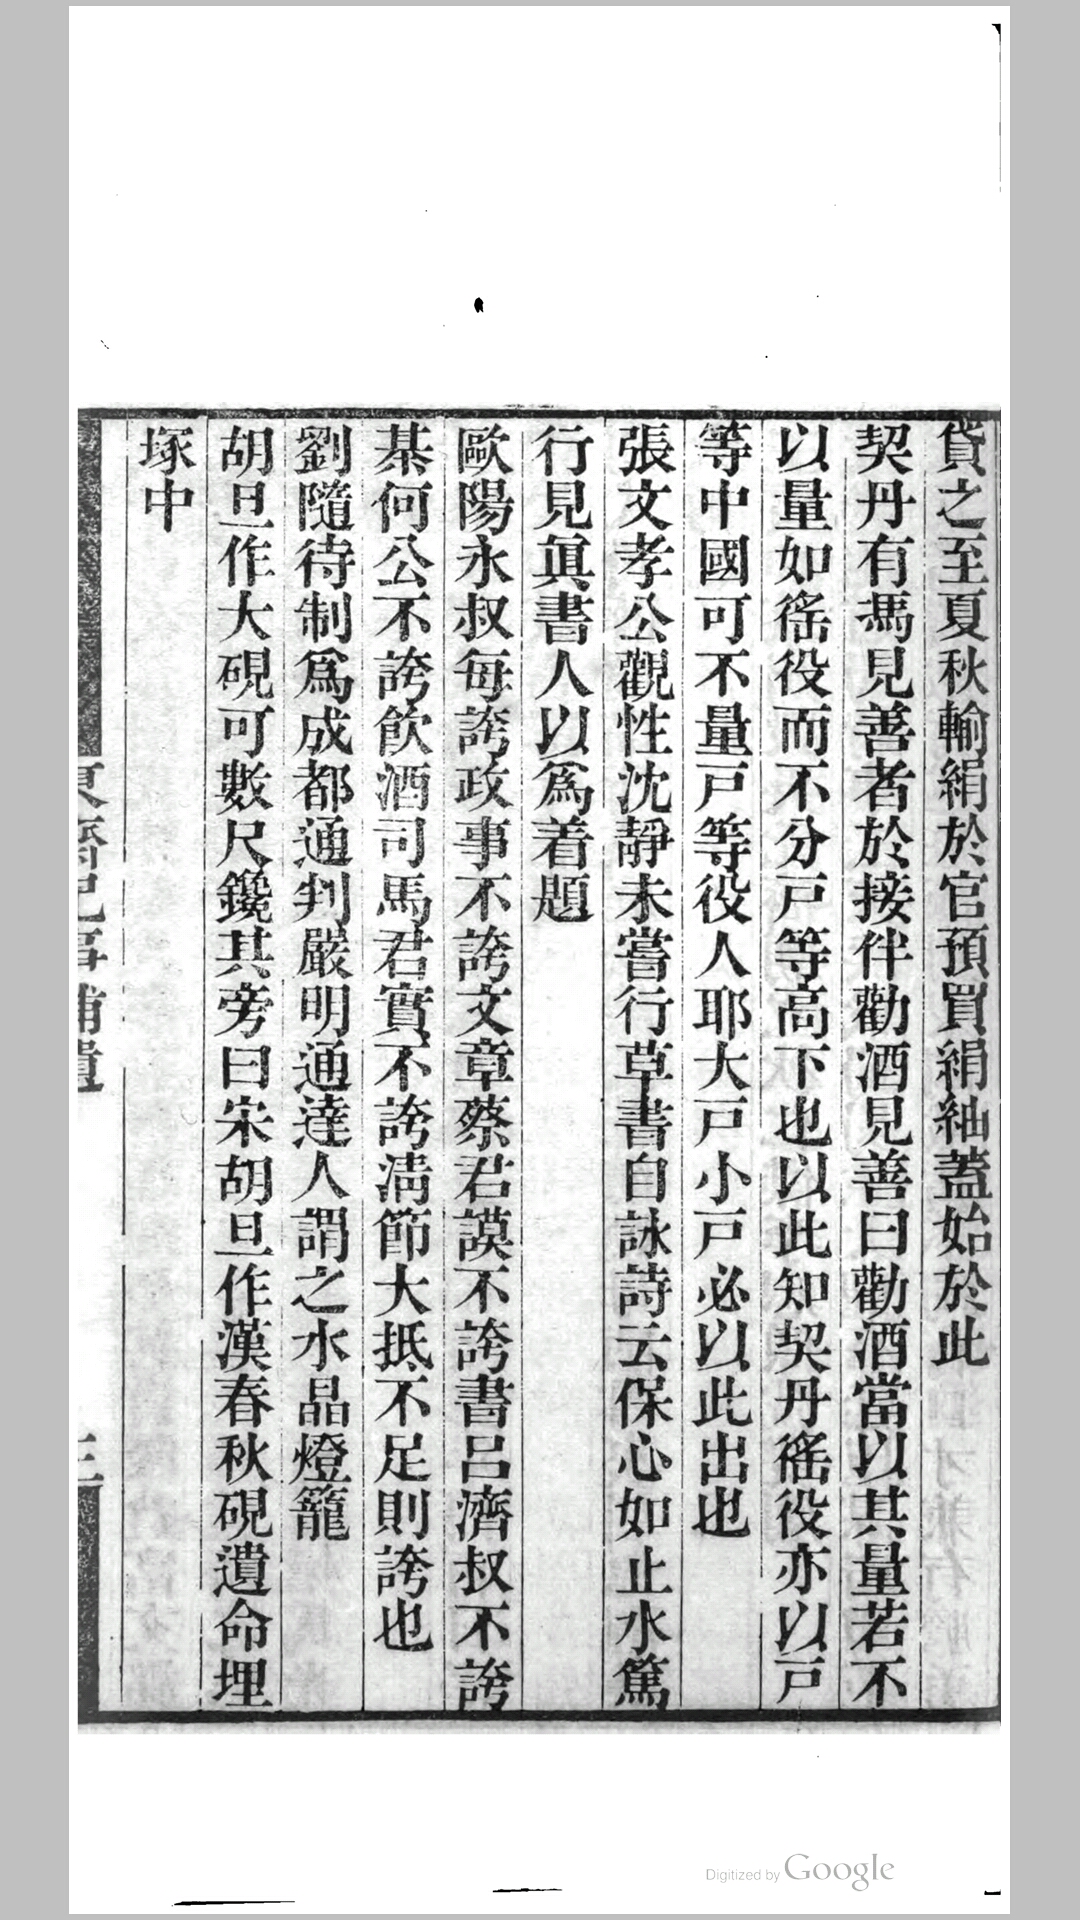 貸之至夏秋輸絹於官預買絹紬蓋始於此
契丹有馮見善者於接伴勸酒見善曰勸酒當以其量若不
以量如徭役而不分戸等高下也以此知契丹徭役亦以戸
等中國可不量戸等役人耶大戸小戸必以此出也
張文孝公觀性沈靜未嘗行草書自詠詩云保心如止水篤
行見眞書人以爲着題
歐陽永叔每誇政事不誇文章蔡君謨不誇書呂濟叔不誇
棊何公不誇飲酒司馬君實不誇淸節大抵不足則誇也
劉隨待制爲成都通判嚴明通達人謂之水晶燈籠
胡旦作大硯可數尺鑱其旁曰宋胡旦作漢春秋硯遺命埋
塚中
東齋記事補遺
三
Digitized by Google